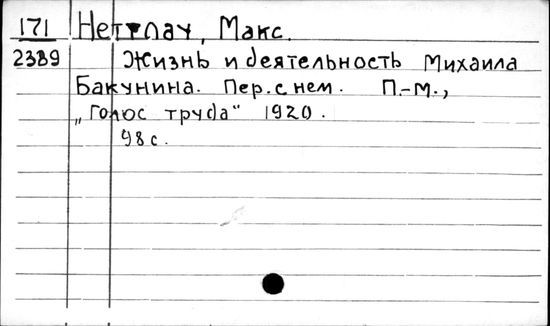 171 Неттлау, Макс.
2389 Жизнь и деятельность Михаила
Бакунина. Пер. с нем. П.-М.,
„Голос труда" 1920.
98 с.